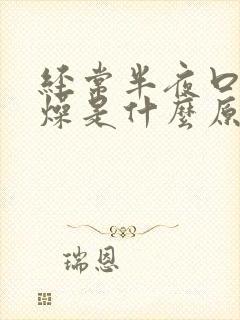 经常半夜口
燥是什麼原
瑞恩